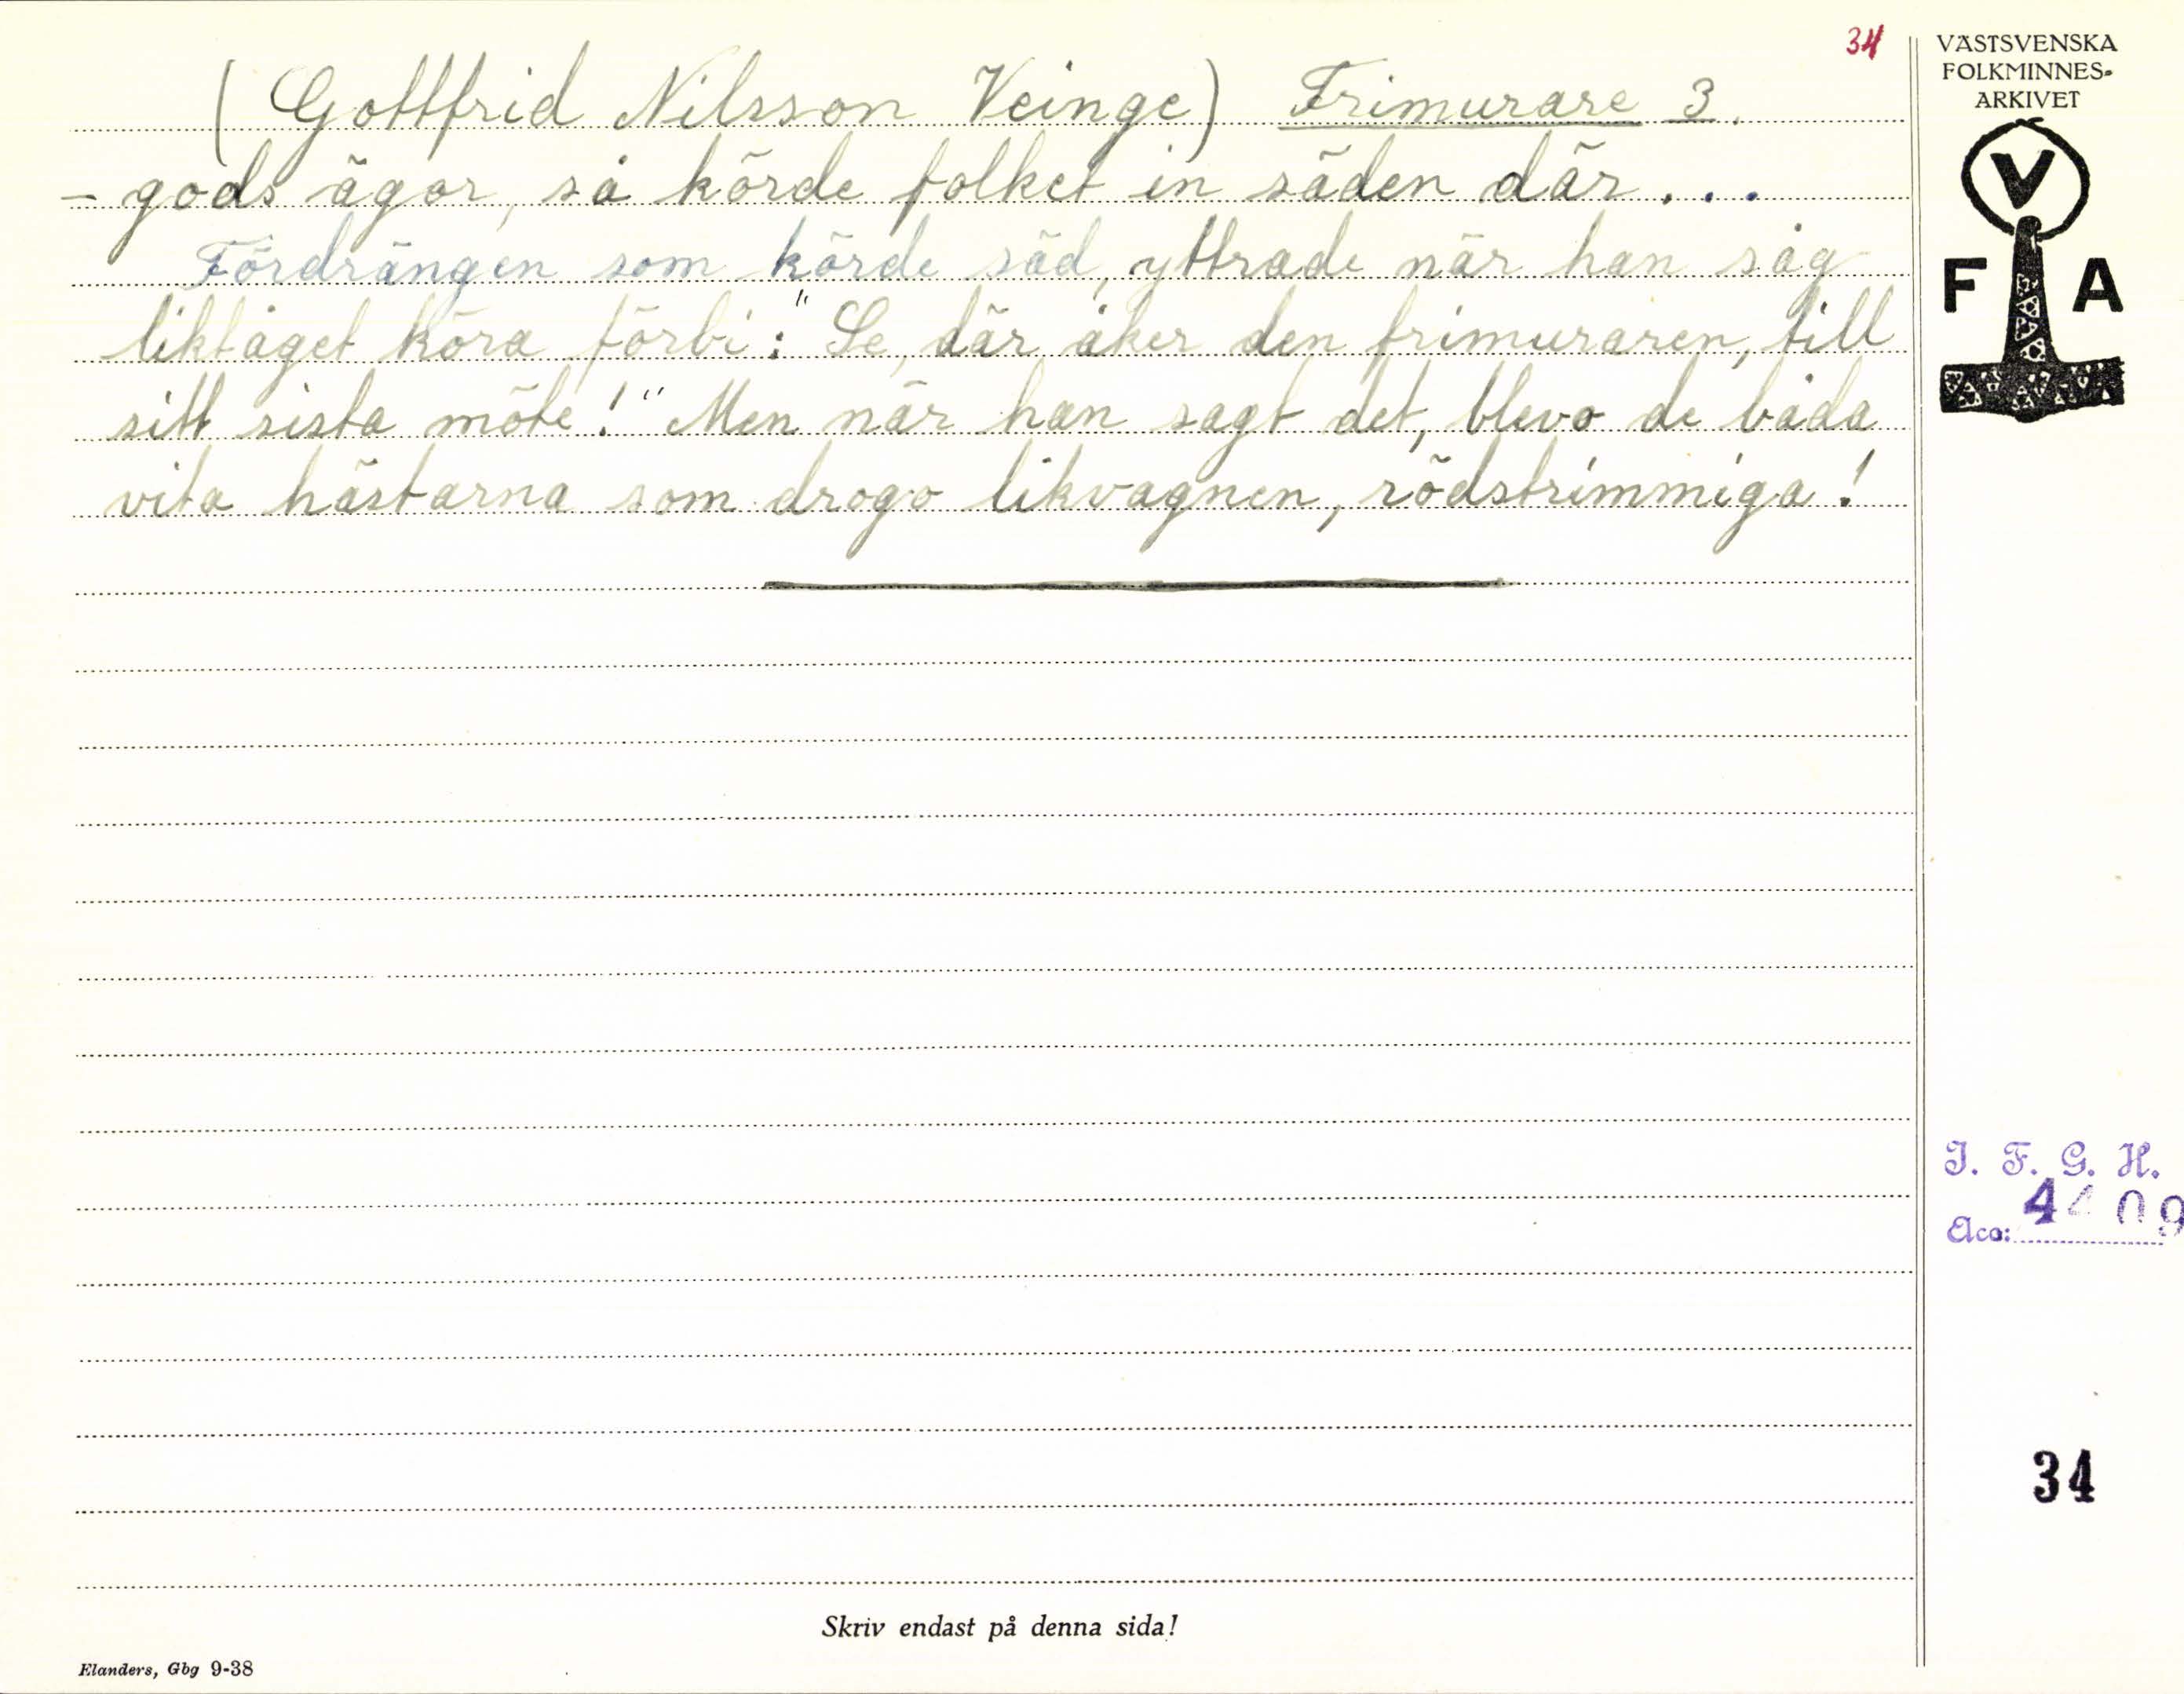 34
(Gottfrid Nilsson Veinge) Frimurare 3.
- gods ägor, så körde folket in säden där...
Fördrängen som körde säd, yttrade när han såg
liktåget köra förbi: "Se, där åker den frimuraren, till
sitt sista möte!" Men när han sagt det, blevo de båda
vita hästarna som drogo likvagnen, rödstrimmiga!
VÄSTSVENSKA
FOLKMINNES-
ARKIVET
V
F A
I. F. G. H.
Acc: 4409
34
Skriv endast på denna sida!
Elanders, Gbg 9-38